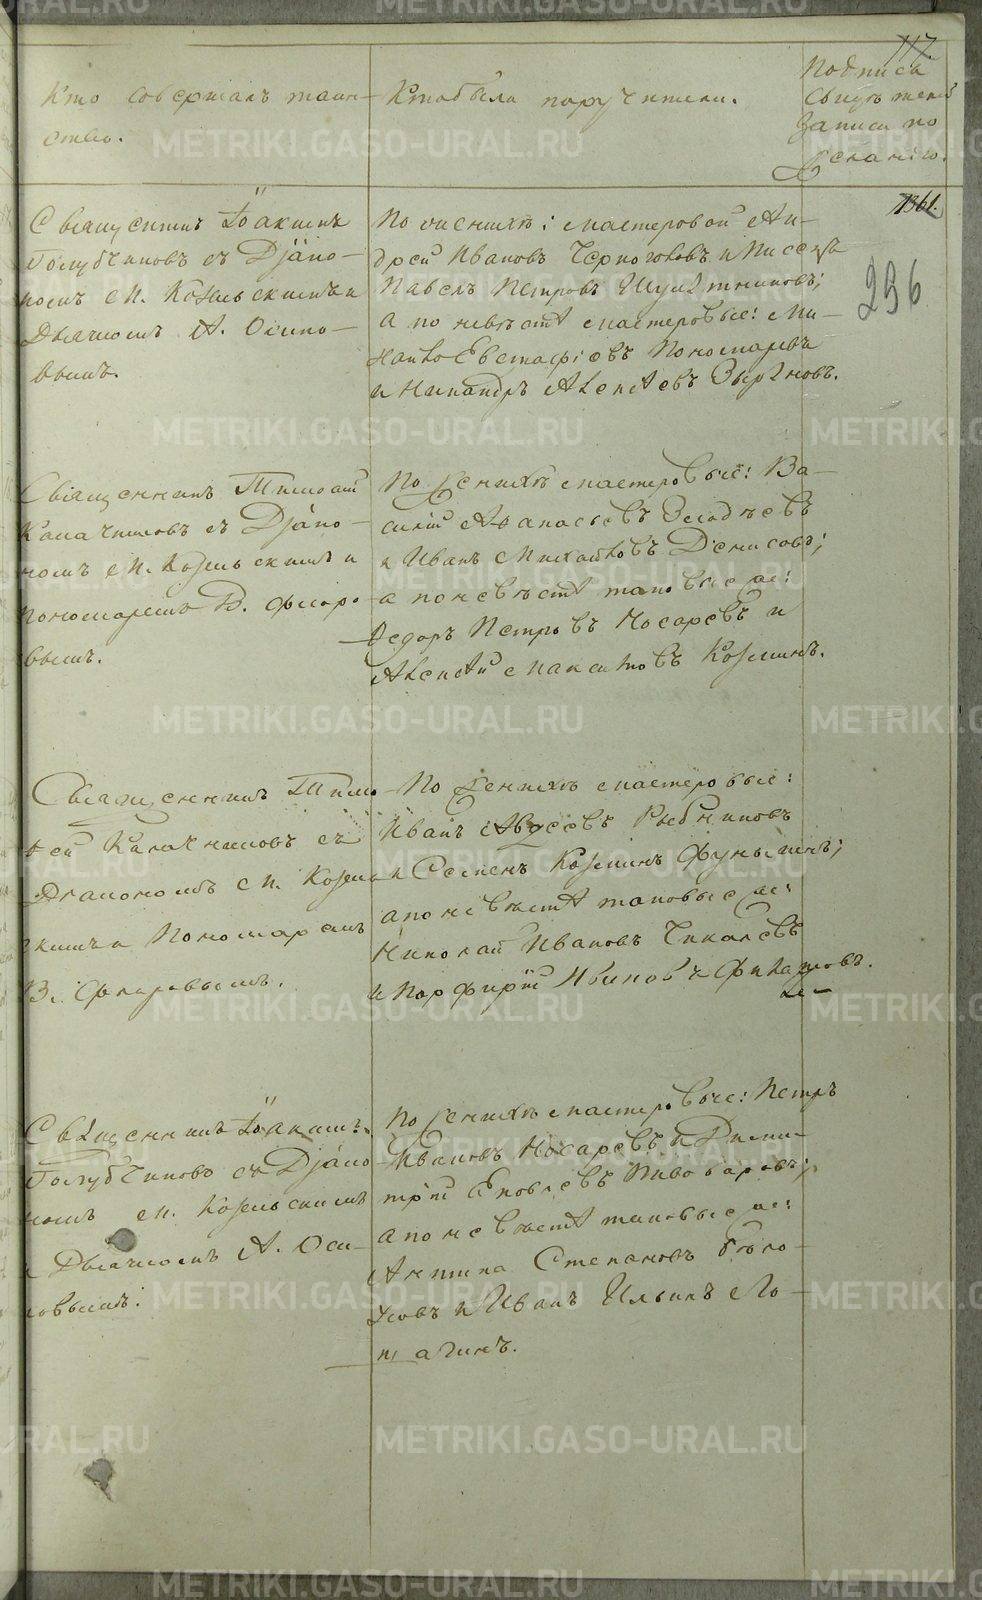 117.
Кто совершалъ таин-
ство.
Кто были поручители.
Подпись
свидѣтелей
записи по
желанію.
1361.
236
Священникъ Іоакимъ
Голубчиковъ съ Діако-
номъ М. Козельскимъ и
Дьячкомъ А. Осипо-
вымъ.
По женихѣ: мастеровой Ан-
дрей Ивановъ Черноголовъ и Писецъ
Павелъ Петровъ
а по невѣстѣ мастеровые: Ми-
хайло Евстафіевъ Пономаревъ
и Никандръ Алексѣевъ Зыряновъ.
Священникъ Тимоѳей
Калачниковъ съ Діако-
номъ М. Козельскимъ и
Пономаремъ В. Флоро-
вымъ.
По женихѣ мастеровые: Ва-
силій Аѳанасьевъ
и Иванъ Михайловъ Денисовъ;
а по невѣстѣ таковые же:
Ѳедоръ Петровъ Носаревъ и
Алексѣй Максимовъ Козминъ.
Священникъ Тимо-
ѳей Калачниковъ съ
Діакономъ М. Козель-
скимъ и Пономаремъ
В. Флоровымъ.
По женихѣ мастеровые:
Иванъ Рыбниковъ
и Семенъ Козминъ
а по невѣстѣ таковые же:
Николай Ивановъ Чикалевъ
и Порфирій Филатовъ.
Священникъ Іоакимъ
Голубчиковъ съ Діако-
номъ М. Козельскимъ
и Дьячкомъ А. Оси-
повымъ.
По женихѣ мастеровые: Петръ
Ивановъ Носаревъ и Дими-
трій Яковлевъ Пивоваровъ;
а по невѣстѣ таковые же:
Антипа Степановъ Бѣло-
усовъ и Иванъ Ильинъ Ло-
пагинъ.
METRIKI.GASO-URAL.RU